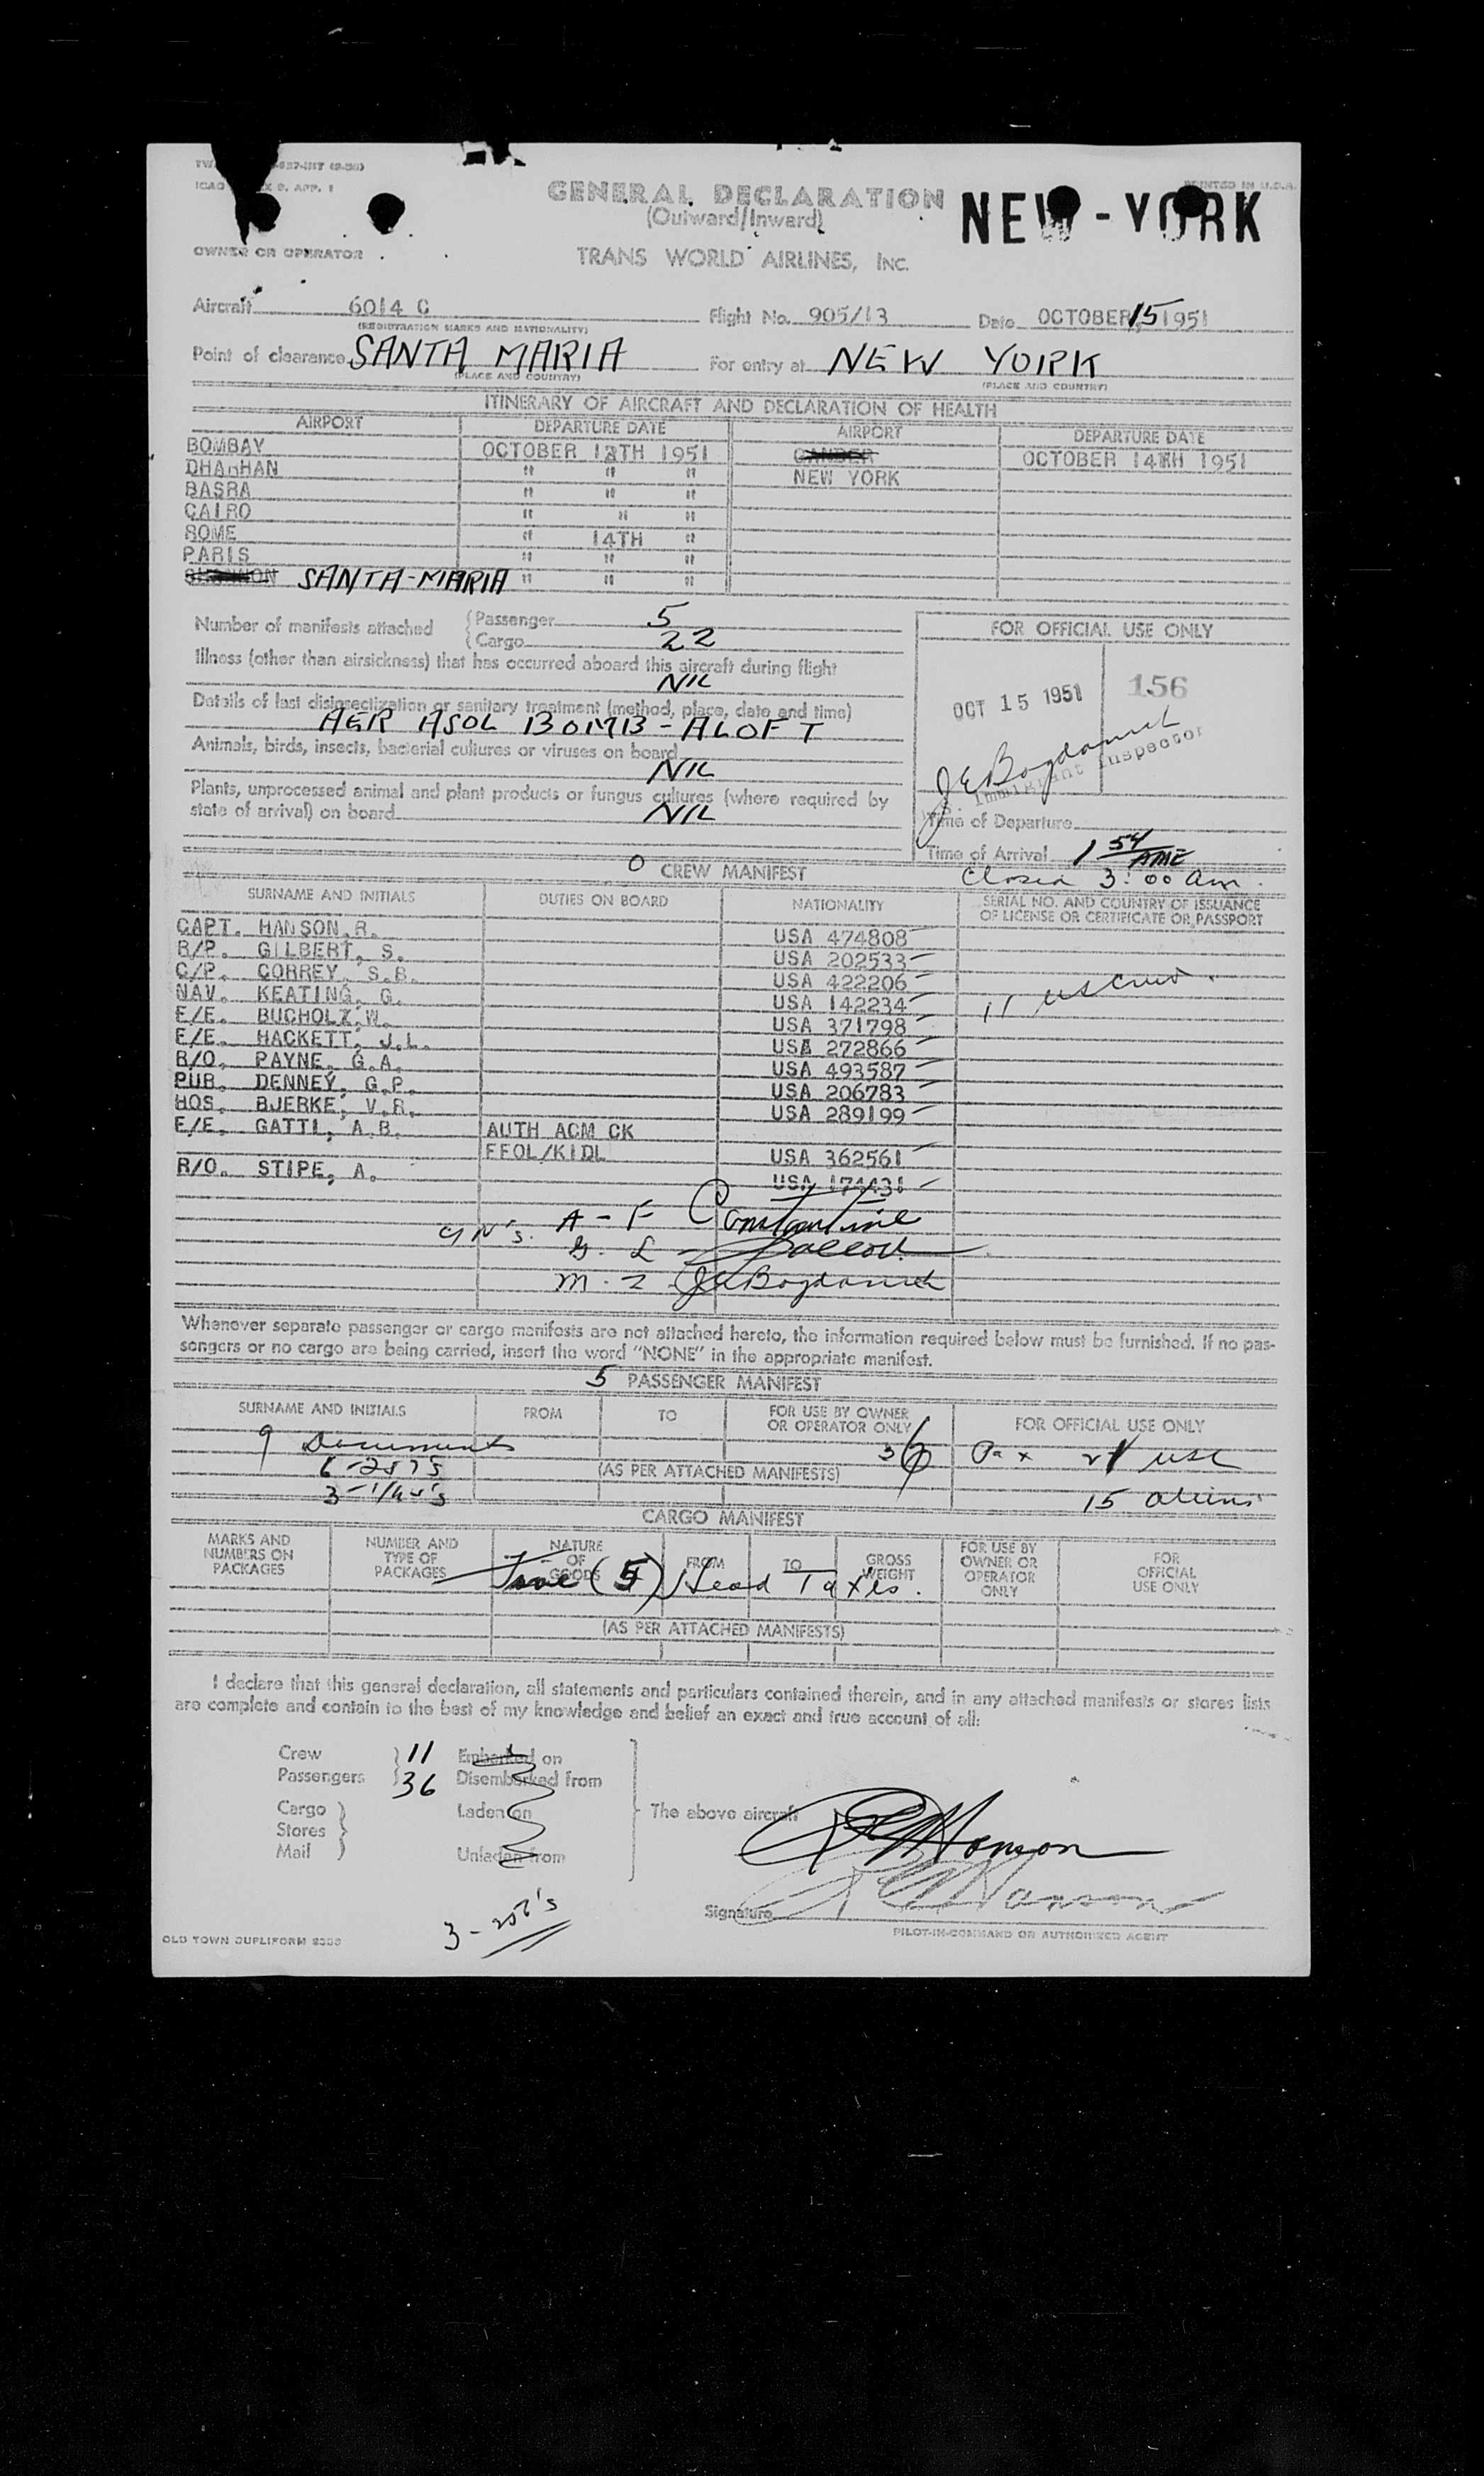 ICAO X 9. APP. 1
PRINTED IN U.S.A.
GENERAL DECLARATION
(Outward/Inward)
NEW-YORK
OWNER OR OPERATOR
TRANS WORLD AIRLINES, INC.
Aircraft 6014 C Flight No. 905/13 Date OCTOBER 15 1951
(REGISTRATION MARKS AND NATIONALITY)
Point of clearance SANTA MARIA For entry at NEW YORK
(PLACE AND COUNTRY) (PLACE AND COUNTRY)
ITINERARY OF AIRCRAFT AND DECLARATION OF HEALTH
AIRPORT DEPARTURE DATE AIRPORT DEPARTURE DATE
BOMBAY OCTOBER 13TH 1951 GANDER OCTOBER 14TH 1951
DHAHHAN " " " NEW YORK
BASRA " " "
CAIRO " " "
ROME " 14TH "
PARIS " " "
SHANNON SANTA-MARIA " " "
Number of manifests attached { Passenger 5
{ Cargo 22
FOR OFFICIAL USE ONLY
Illness (other than airsickness) that has occurred aboard this aircraft during flight
NIL
OCT 15 1951 156
Details of last disinsectization or sanitary treatment (method, place, date and time)
AER ASOL BOMB - ALOFT
Animals, birds, insects, bacterial cultures or viruses on board
NIL
Immigrant Inspector
Plants, unprocessed animal and plant products or fungus cultures (where required by
state of arrival) on board NIL
Time of Departure
Time of Arrival 1 54 AME
Closed 3:00 am.
0 CREW MANIFEST
SURNAME AND INITIALS DUTIES ON BOARD NATIONALITY SERIAL NO. AND COUNTRY OF ISSUANCE
OF LICENSE OR CERTIFICATE OR PASSPORT
CAPT. HANSON, R. USA 474808
R/P. GILBERT, S. USA 202533
C/P. CORREY, S.B. USA 422206
NAV. KEATING, G. USA 142234
F/E. BUCHOLZ, W. USA 371798
F/E. HACKETT, J.L. USA 272866
R/O. PAYNE, G.A. USA 493587
PUR. DENNEY, G.P. USA 206783
HOS. BJERKE, V.R. USA 289199
F/E. GATTI, A.B. AUTH ACM CK
FEOL/KIDL USA 362561
R/O. STIPE, A. USA 174431
A - F Constantine
G. L
M - Z J E Bogdanich
Whenever separate passenger or cargo manifests are not attached hereto, the information required below must be furnished. If no pas-
sengers or no cargo are being carried, insert the word "NONE" in the appropriate manifest.
5 PASSENGER MANIFEST
SURNAME AND INITIALS FROM TO FOR USE BY OWNER
OR OPERATOR ONLY FOR OFFICIAL USE ONLY
9 Documents 36 Pax 21 USC
(AS PER ATTACHED MANIFESTS)
15 aliens
CARGO MANIFEST
MARKS AND
NUMBERS ON
PACKAGES
NUMBER AND
TYPE OF
PACKAGES
NATURE
OF
GOODS
FROM TO GROSS
WEIGHT
FOR USE BY
OWNER OR
OPERATOR
ONLY
FOR
OFFICIAL
USE ONLY
(5) Head Taxes.
(AS PER ATTACHED MANIFESTS)
I declare that this general declaration, all statements and particulars contained therein, and in any attached manifests or stores lists
are complete and contain to the best of my knowledge and belief an exact and true account of all:
Crew } 11 Embarked on
Passengers } 36 Disembarked from
Cargo } Laden on The above aircraft
Stores }
Mail } Unladen from
R Hanson
Signature
PILOT-IN-COMMAND OR AUTHORIZED AGENT
OLD TOWN DUPLIFORM